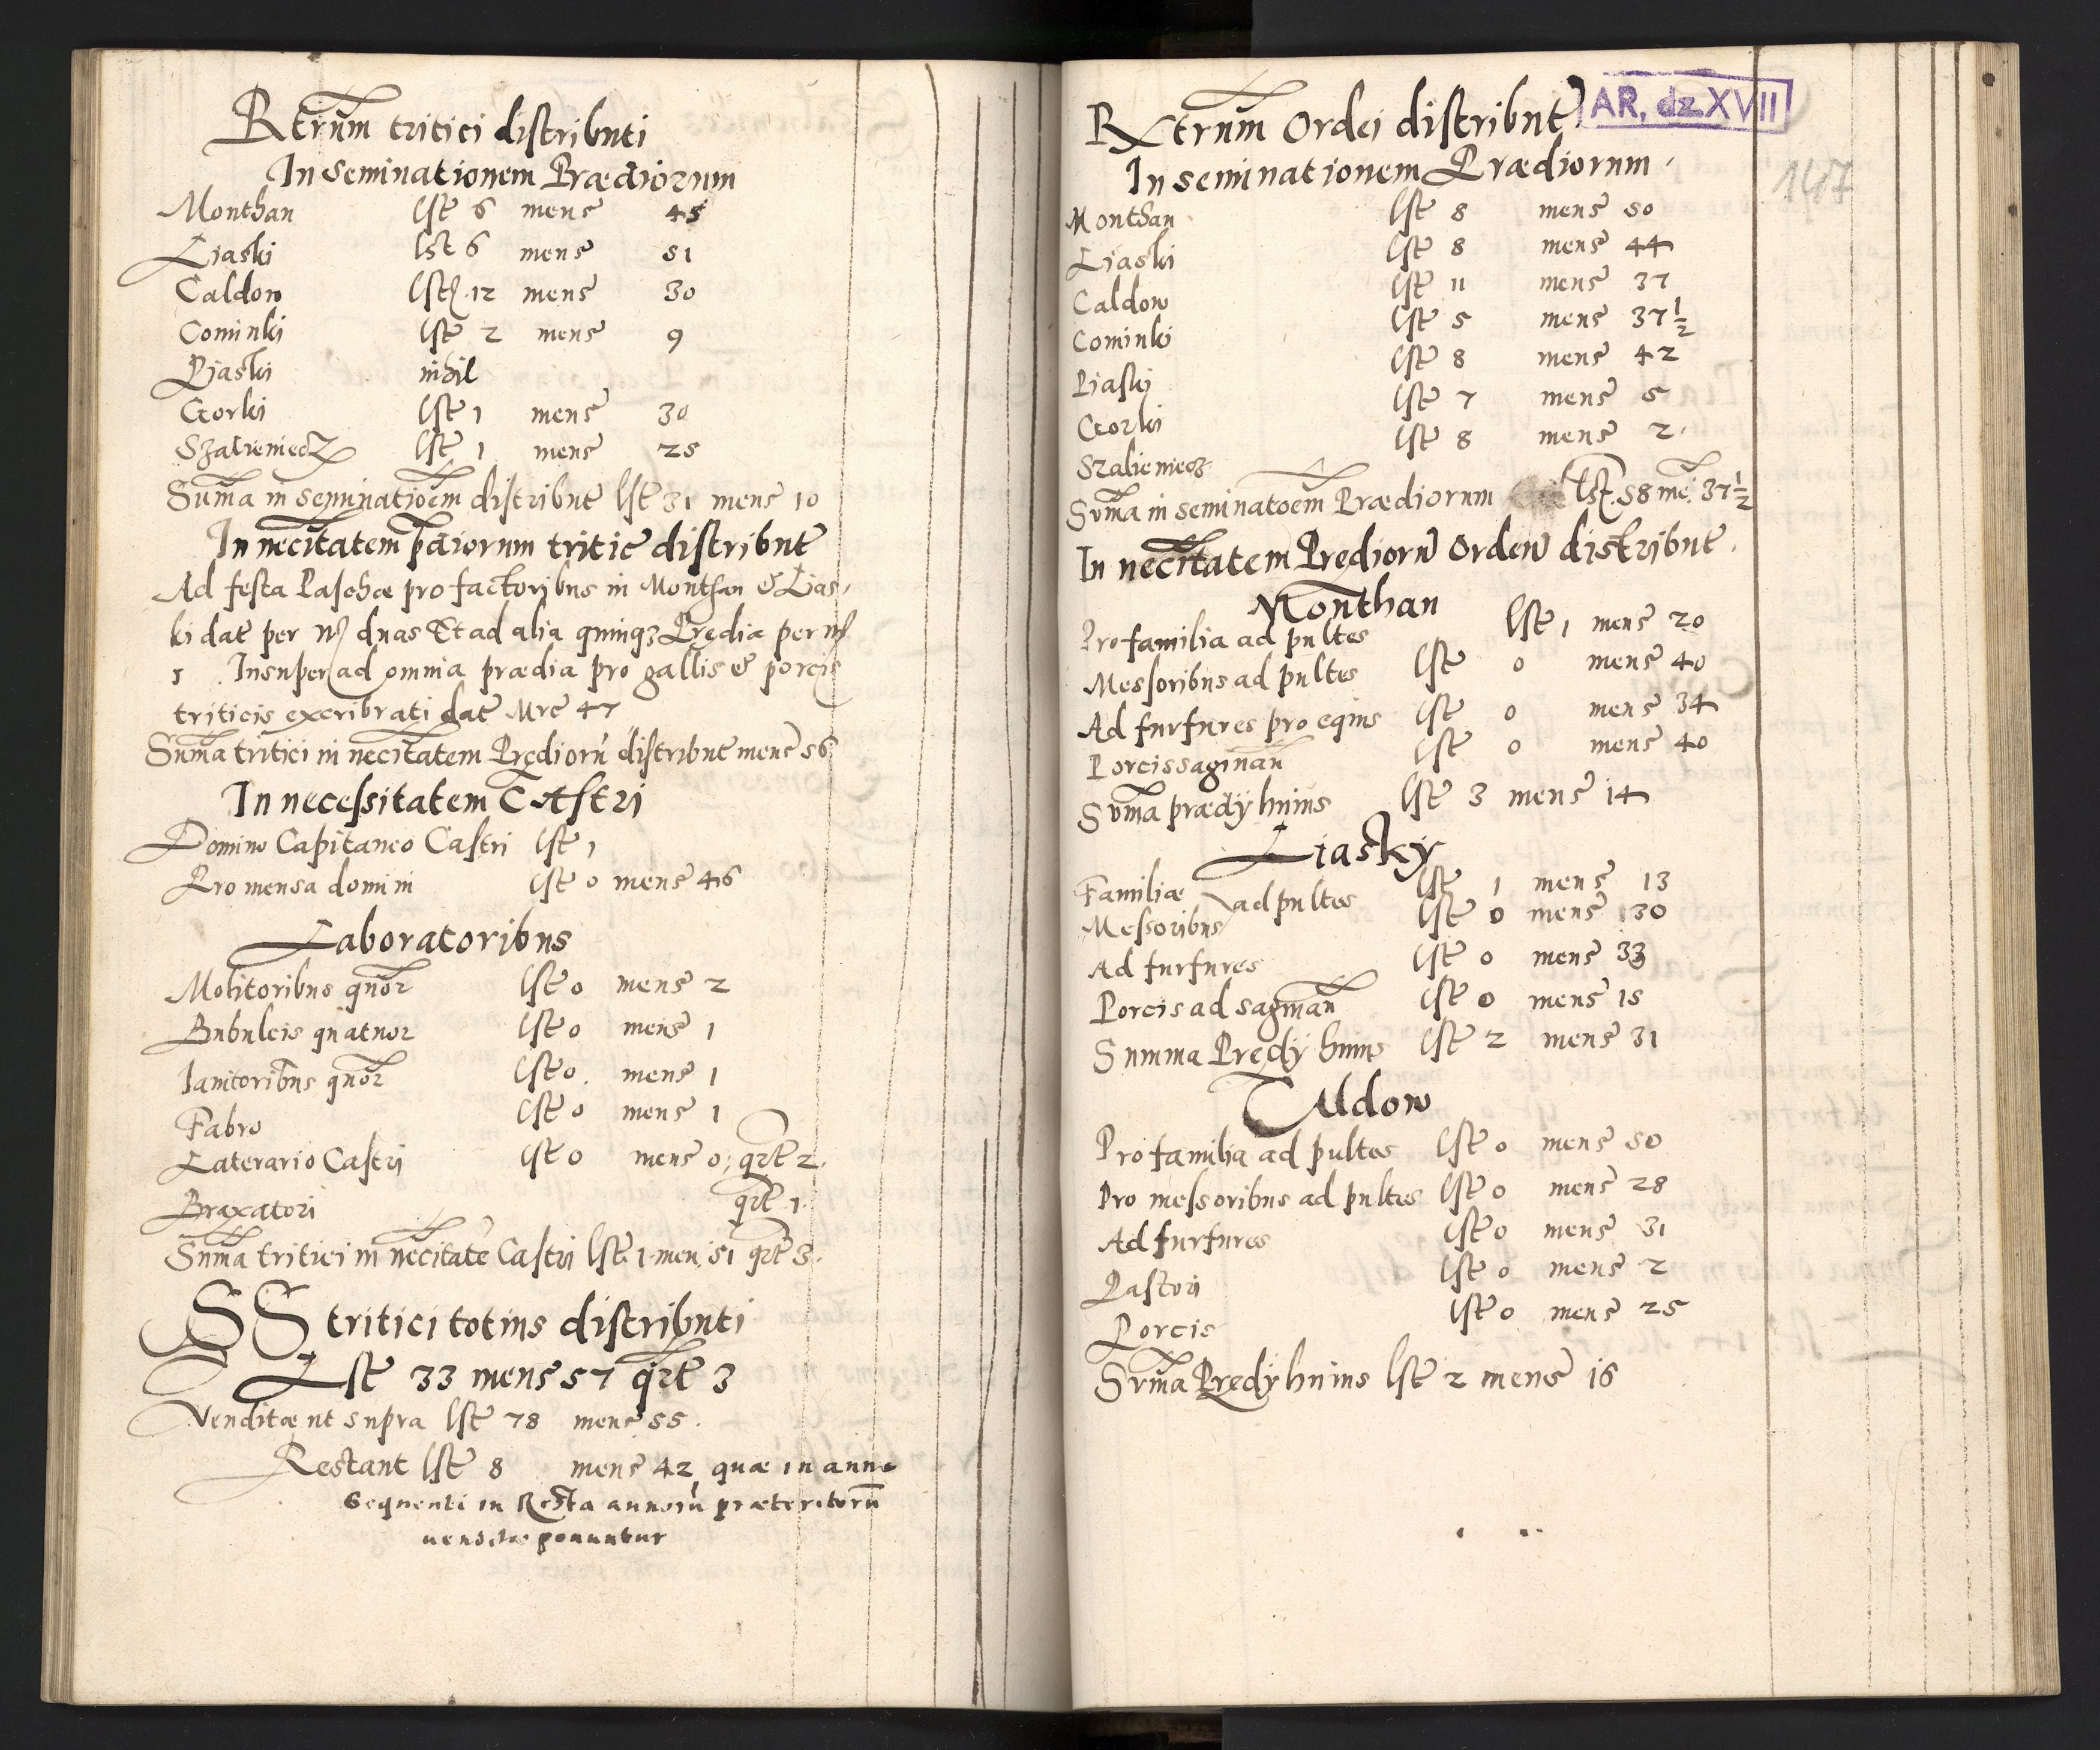 Rtrum tritici distributi
In seminationem Prædiorum
Monthan lste 6 mens 45
Liaski lste 6 mens 51
Caldow lste 12 mens 30
Cominki lste 2 mens 9
Piaski nihil
Gorki lste 1 mens 30
Szalieniecz lste 1 mens 25
Suma in seminatioem distribut lste 31 mens 10
In necitatem pdiorum tritic distribut
Ad festa Paschæ pro factoribus in Monthan & Lias,
ki dat per duas Et ad alia quinqz Prędia per
1 Insuper ad omnia prædia pro gallis & porcis
triticis excribrati dat Mre 47
Suma tritici in necitatem Prędioru distribut mens 56
In necessitatem CAstri
Domino Capitaneo Castri lste 1
Pro mensa domini lste 0 mens 46
Laboratoribus
Molitoribus quor lste 0 mens 2
Bubulcis quatuor lste 0 mens 1
Ianitoribus quor lste 0 mens 1
Fabro lste 0 mens 1
Laterario Castri lste 0 mens 0, qrt 2.
Braxatori qrt 1.
Suma tritici in necitate Castri lste 1 men 51 qrt 3.
SS tritici totius distributi
Lste 33 mens 57 qrt 3
Venditæ ut supra lste 78 mens 55.
Restant lste 8 mens 42, quæ in anno
sequenti in Resta annoru præteritoru
venditæ ponuntur
Rxtrum Ordei distribut
AR, dz. XVII
In seminationem Prædiorum.
147
Monthan lste 8 mens 50
Liaski lste 8 mens 44
Caldow lste 11 mens 37
Cominki lste 5 mens 37 1/2
Piaski lste 8 mens 42
Gorki lste 7 mens 5
Szalieniecz lste 8 mens 2.
Suma in seminatoem Prædiorum lst. 58 me. 37 1/2
In necitatem Prędioru Ordeu distribut.
Monthan
Pro familia ad pultes lste 1 mens 20
Messoribus ad pultes lste 0 mens 40
Ad furfures pro equis lste 0 mens 34
Porcis saginan lste 0 mens 40
Suma prædij huius lste 3 mens 14
Liasky
Familiæ ad pultes lste 1 mens 13
Messoribus lste 0 mens 30
Ad furfures lste 0 mens 33
Porcis ad saginan lste 0 mens 15
Summa Prędij huius lste 2 mens 31
CAldow
Pro familia ad pultes lste 0 mens 50
Pro messoribus ad pultes lste 0 mens 28
Ad furfures lste 0 mens 31
Pastori lste 0 mens 2
Porcis lste 0 mens 25
Suma Prędij huius lste 2 mens 16